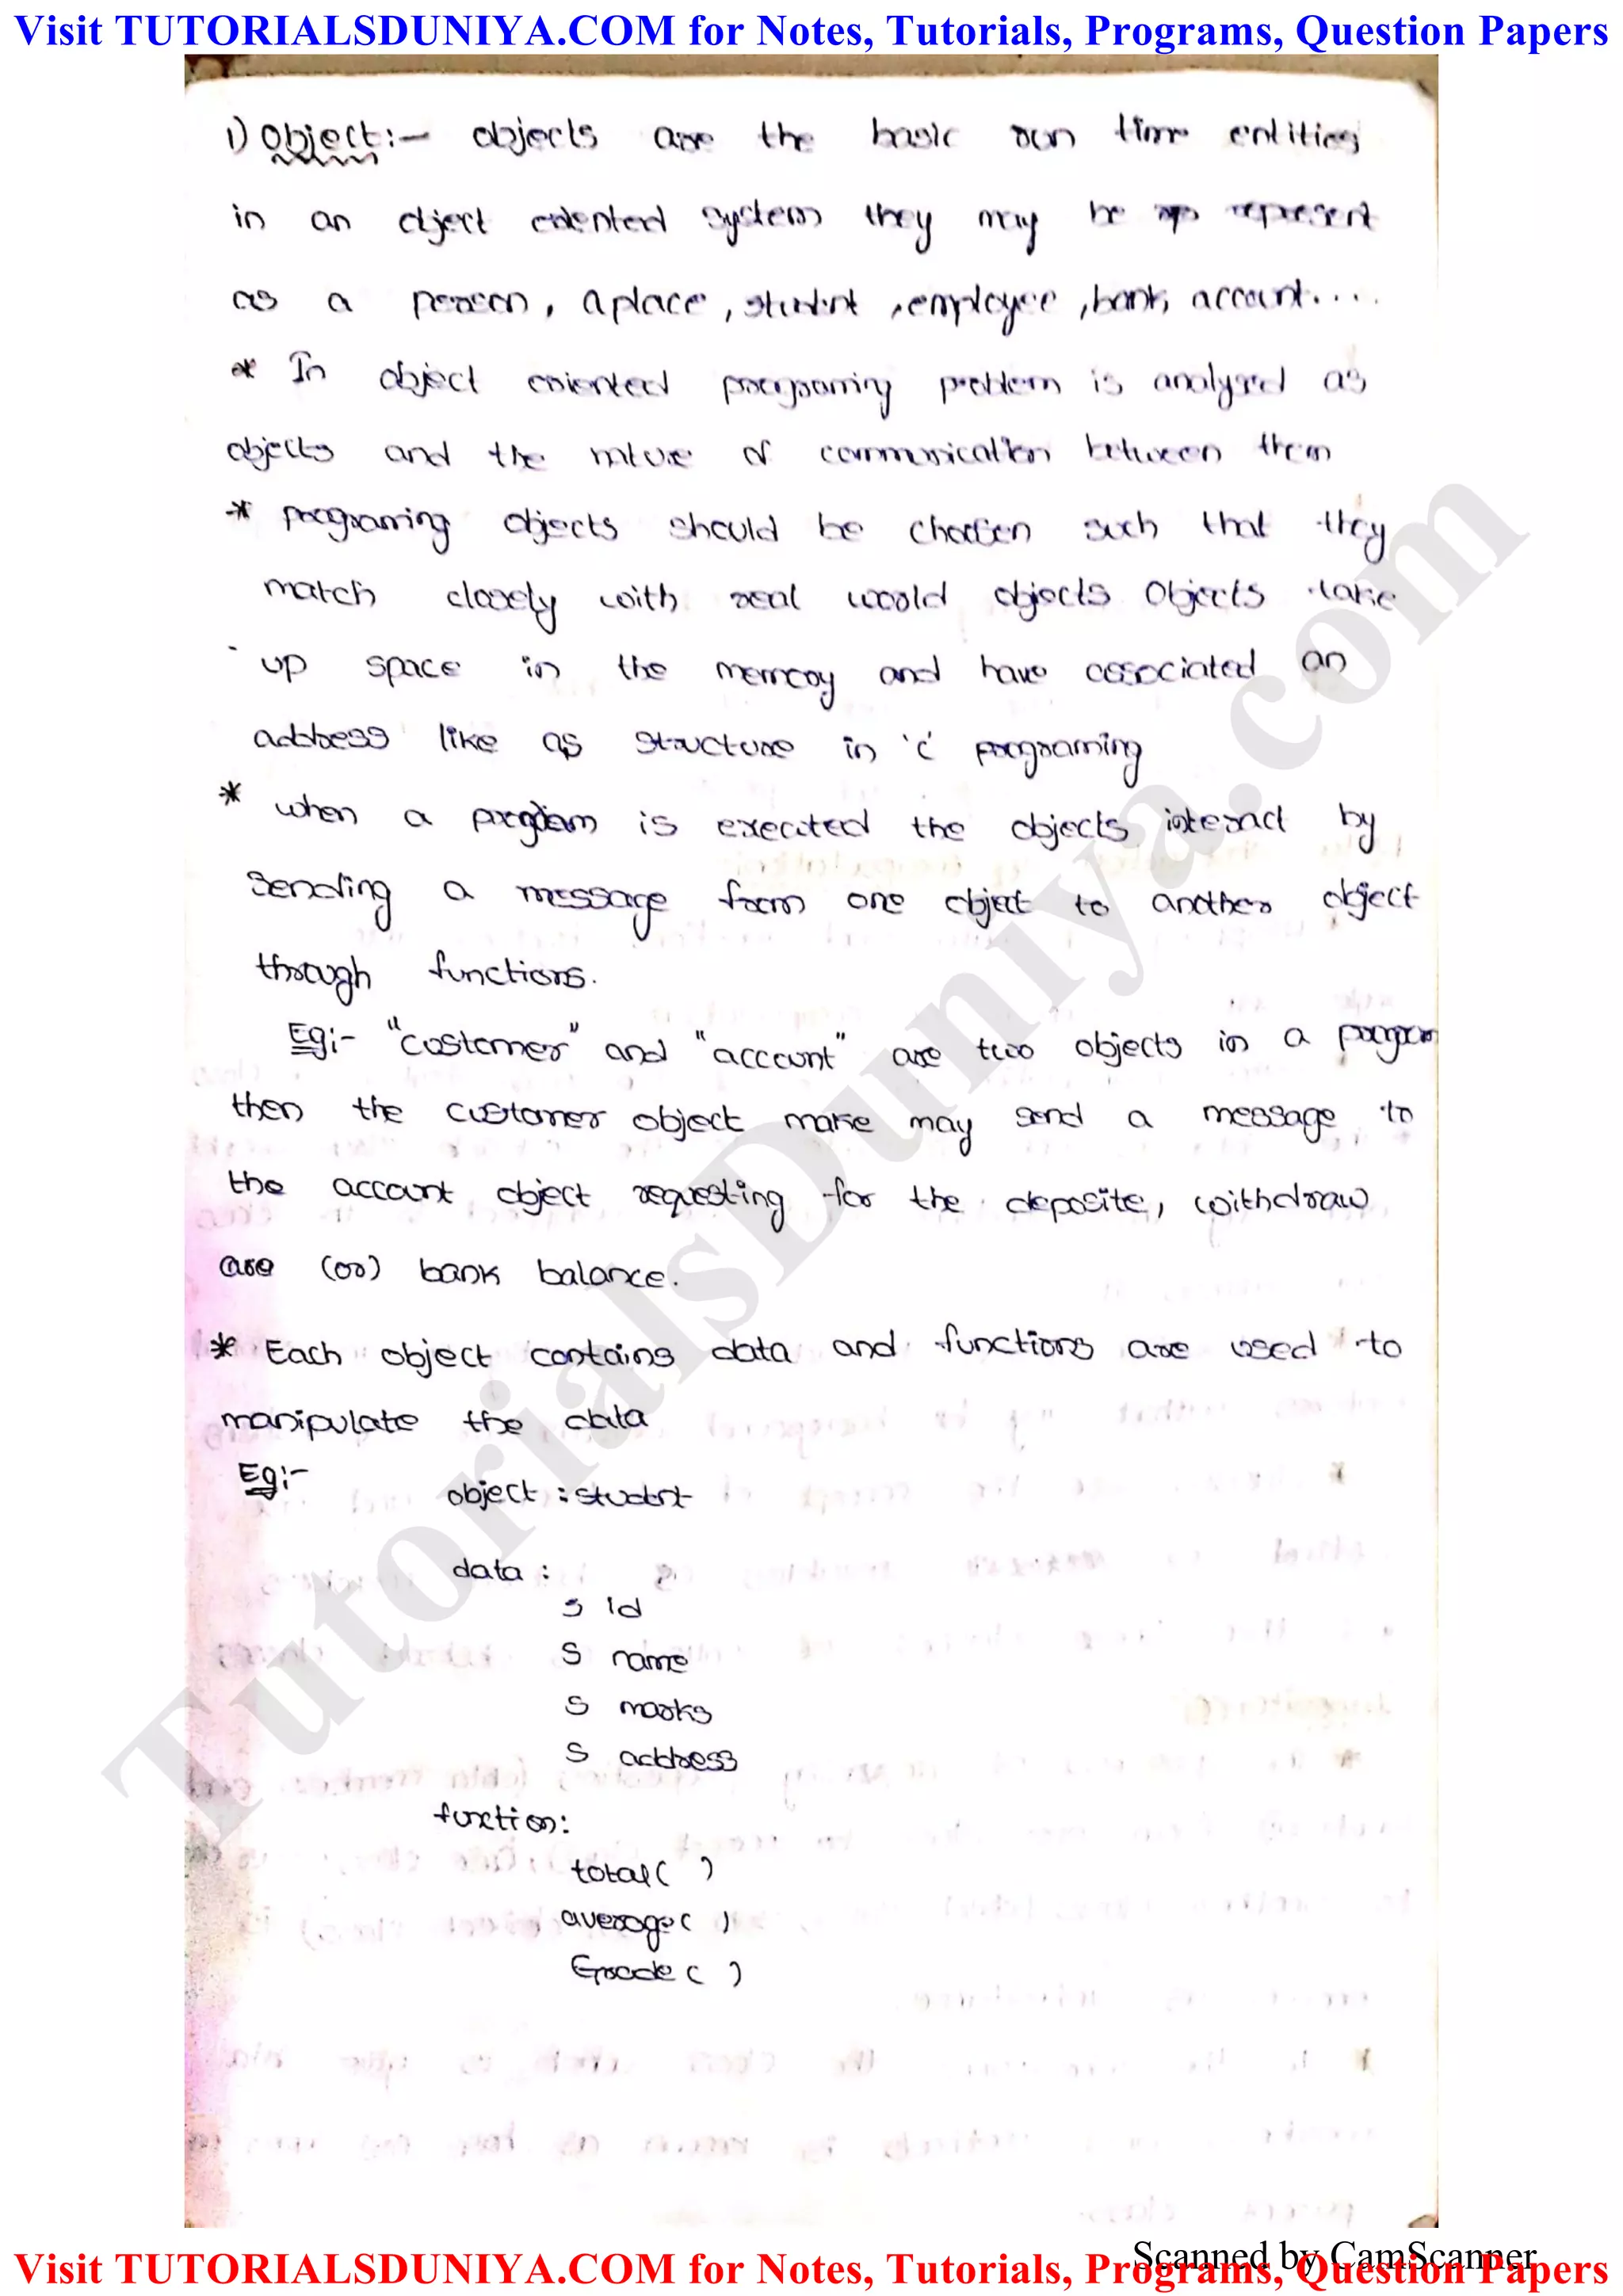 Visit TUTORIALSDUNIYA.COM for Notes, Tutorials, Programs, Question Papers
1) Object:- objects are the basic run time entities
in an object oriented system they may be represent
as a person, a place, student, employee, bank account....
* In object oriented programing problem is analyzed as
objects and the nature of communication between them
* programing objects should be choosen such that they
match closely with real world objects Objects take
up space in the memroy and have associated an
address like as structure in 'c' programing
* when a program is executed the objects interact by
sending a message from one object to another object
through functions.
Eg:- "customer" and "account" are two objects in a program
then the customer object make may send a message to
the account object requesting for the deposite, withdraw
are (or) bank balance.
* Each object contains data and functions are used to
manipulate the data
Eg:-
object : student
data :
S id
S name
S marks
S address
function:
total( )
average( )
Grade( )
TutorialsDuniya.com
Scanned by CamScanner
Visit TUTORIALSDUNIYA.COM for Notes, Tutorials, Programs, Question Papers